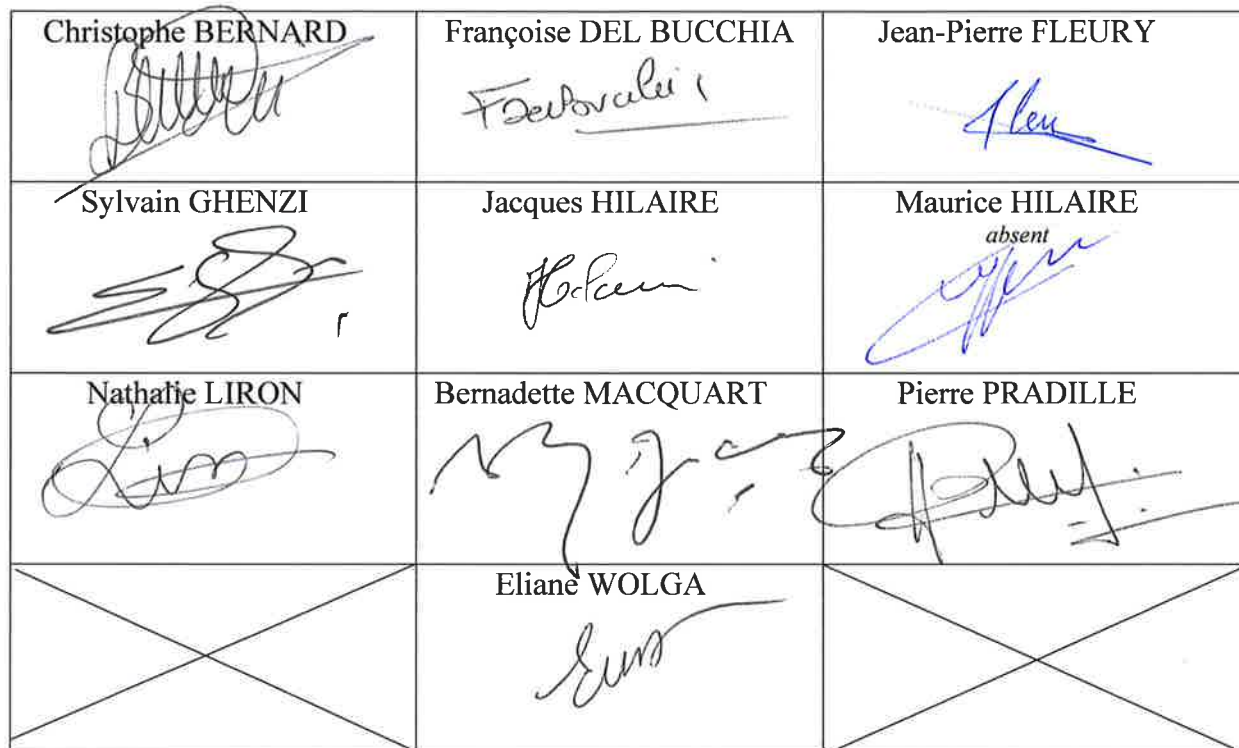 Christophe BERNARD
Françoise DEL BUCCHIA
Jean-Pierre FLEURY
Sylvain GHENZI
Jacques HILAIRE
Maurice HILAIRE
absent
Nathalie LIRON
Bernadette MACQUART
Pierre PRADILLE
Eliane WOLGA